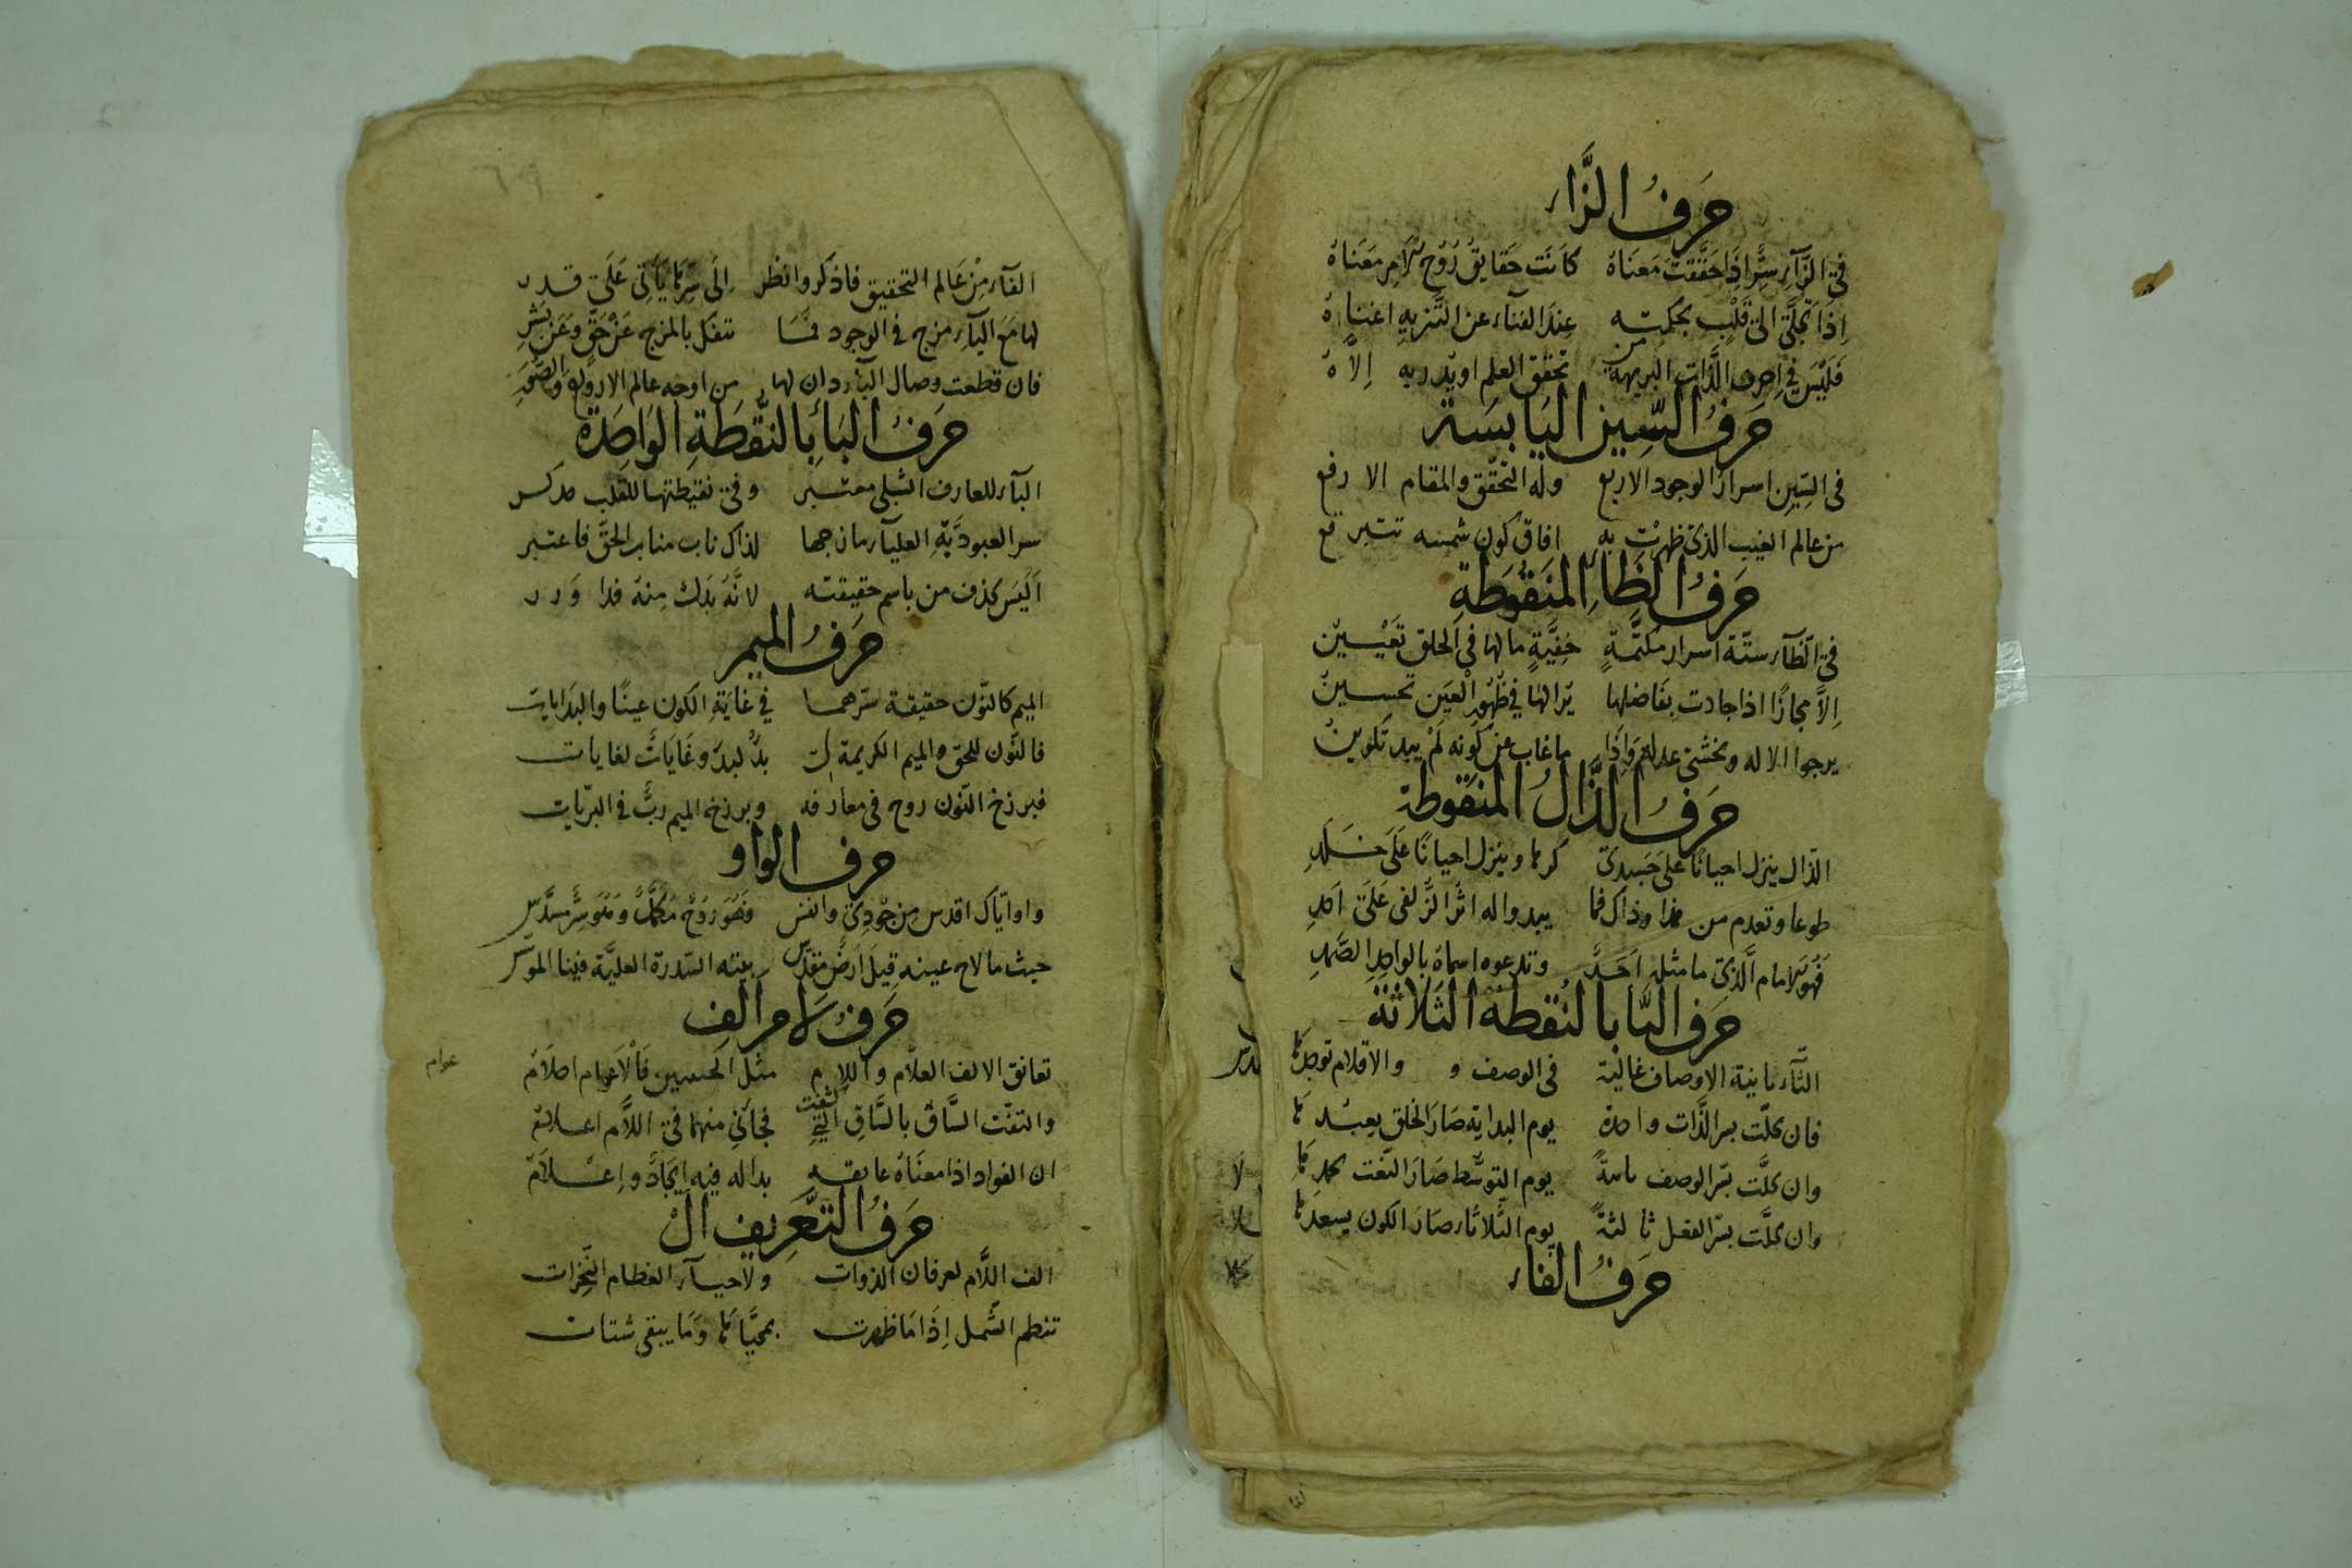 حَرفُ الزَّاء
في الزَّآءِ سِرٌّ إذَا حَقَّقتَ مَعنَاهُ كَانَت حَقايِقُ رُوحِ الامرِ مَعنَاهُ
اِذَا تجلَّى الى قَلْبٍ بحكمته عِندَ الفنآء عن التَّنزيهِ اغناهُ
فَلَيْسَ في احرف الذَّات النزيهة من تحقق العلم او يدريه اِلاَّهُ
حَرفُ السِّين اليَابسَة
فى السِّينِ اسرار الوجود الاربع وله التحقّق والمقام الا رفع
من عالم الغيب الذى ظهرت به اثار كون شمسه تتبرقع
حَرفُ الظَاءِ المنَقُوطَةِ
فى الظَّآء ستّة اسرار مكتّمةٍ خفِيَّةٍ مالها فى الخلق تَعْيِينُ
اِلاَّ مجازًا اذا جادت بفَاضلها يرا لهَا في ظُهُورِ الْعَين تحسينُ
يرجوا الاله ويخشى عدله وَاِذَا ما غاب عن كونه لَمْ يبد تكوينُ
حَرفُ الذَّالُ المنَقُوطة
الذّال ينزل احيانًا عَلى جَسَدِى كرها وينزل احيانًا عَلَى خَلَدِ
طوعا وتعدم من هذا وذاك فما يبدوا له اثر الزُّلفى عَلَى اَحَدِ
فَهُوَ الامام الَّذى ما مثله اَحَدٌ وتدعوه اسماهُ بالواحِدِ الصَّمَدِ
حَرف الثَّا بالنُقطة الثَلاثَة
الثَّآء ذاتية الاوصاف عَالية فى الوصف و والاقلام توجدُهَا
فان تجلّت بسر الذَّات واحدة يوم البداية صَارَ الخلق يعبُدهَا
وان تجلَّت بسّر الوصف ثانيةً يوم التوسّط صَارَ النّعت يحمدهَا
وان تجلَّت بسّر الفعل ثالثةً يوم الثَّلاثاء صَارَ الكون يسعدهَا
حَرفُ الفَاء
٦٩
الفآء مِنْ عَالم التحقيق فاذكر وانظر اِلَى سِرِّهَا يَأتى عَلَى قدر
لها مَعَ اليآءِ مزج فى الوجود فمَا تنفكّ بالمزج عَنْ حَقٍّ وَعَن بَشَرِ
فان قطعت وصال اليآء دان لها من اوجه عالم الارواح والصُّوَرِ
حَرَفُ البَاءِ بالنُّقطَةِ الوَاحِدَة
البآء للعارف الشبلى معتبر وفى نقيطتها للقلب مدكر
سر العبوديَّةِ العليآء مازجها لذاك ناب مناب الحَقّ فاعتبر
اَلَيْسَ يحذف من باسم حقيقته لانَّهُ بَدَلٌ مِنهُ فذا وَزر
حَرفُ الميمر
الميم كالنّون حقيقة سّرهما فى غايَةِ الكون عينًا والبَدَايات
فالنّون للحق والميم الكريمة لى بَدْءٌ لبدءٍ وغَايَاتٌ لغايات
فبرزخ النّون روح فى معارفه وبرزخ الميم ربٌّ فى البرّيات
حرف الواو
واو ايّاك اقدس من وجُودِىْ وانفس وَهُوَ رُوحٌ مُكمَّلٌ وَهُوَ سِرٌّ مسدَّس
حيث ما لاح عينه قيلَ اَرضٌ مقدّس بيته السّدرة العليَّة فينا الموسّس
حَرفُ لَامر اَلِف
تعانق الالف العلّام واللام مثل الحبيبين فَالاَعوام احلاَمُ
عوام
والتفّت السَّاقُ بالسَّاقِ التى فجآنى منهما فى اللفّ اعلامُ
ان الفواد اذا معنَاهُ عانقه بدا له فيهِ اِيجَادٌ واِعْلامُ
حَرَفُ التَّعَرِيف الْ
الف اللَّام لعرفان الذوات ولاحيآء العظام النّخرات
تنظم الشّمل اِذَا مَا ظهرت بمحيَّاهَا وَمَا يبقى شتات